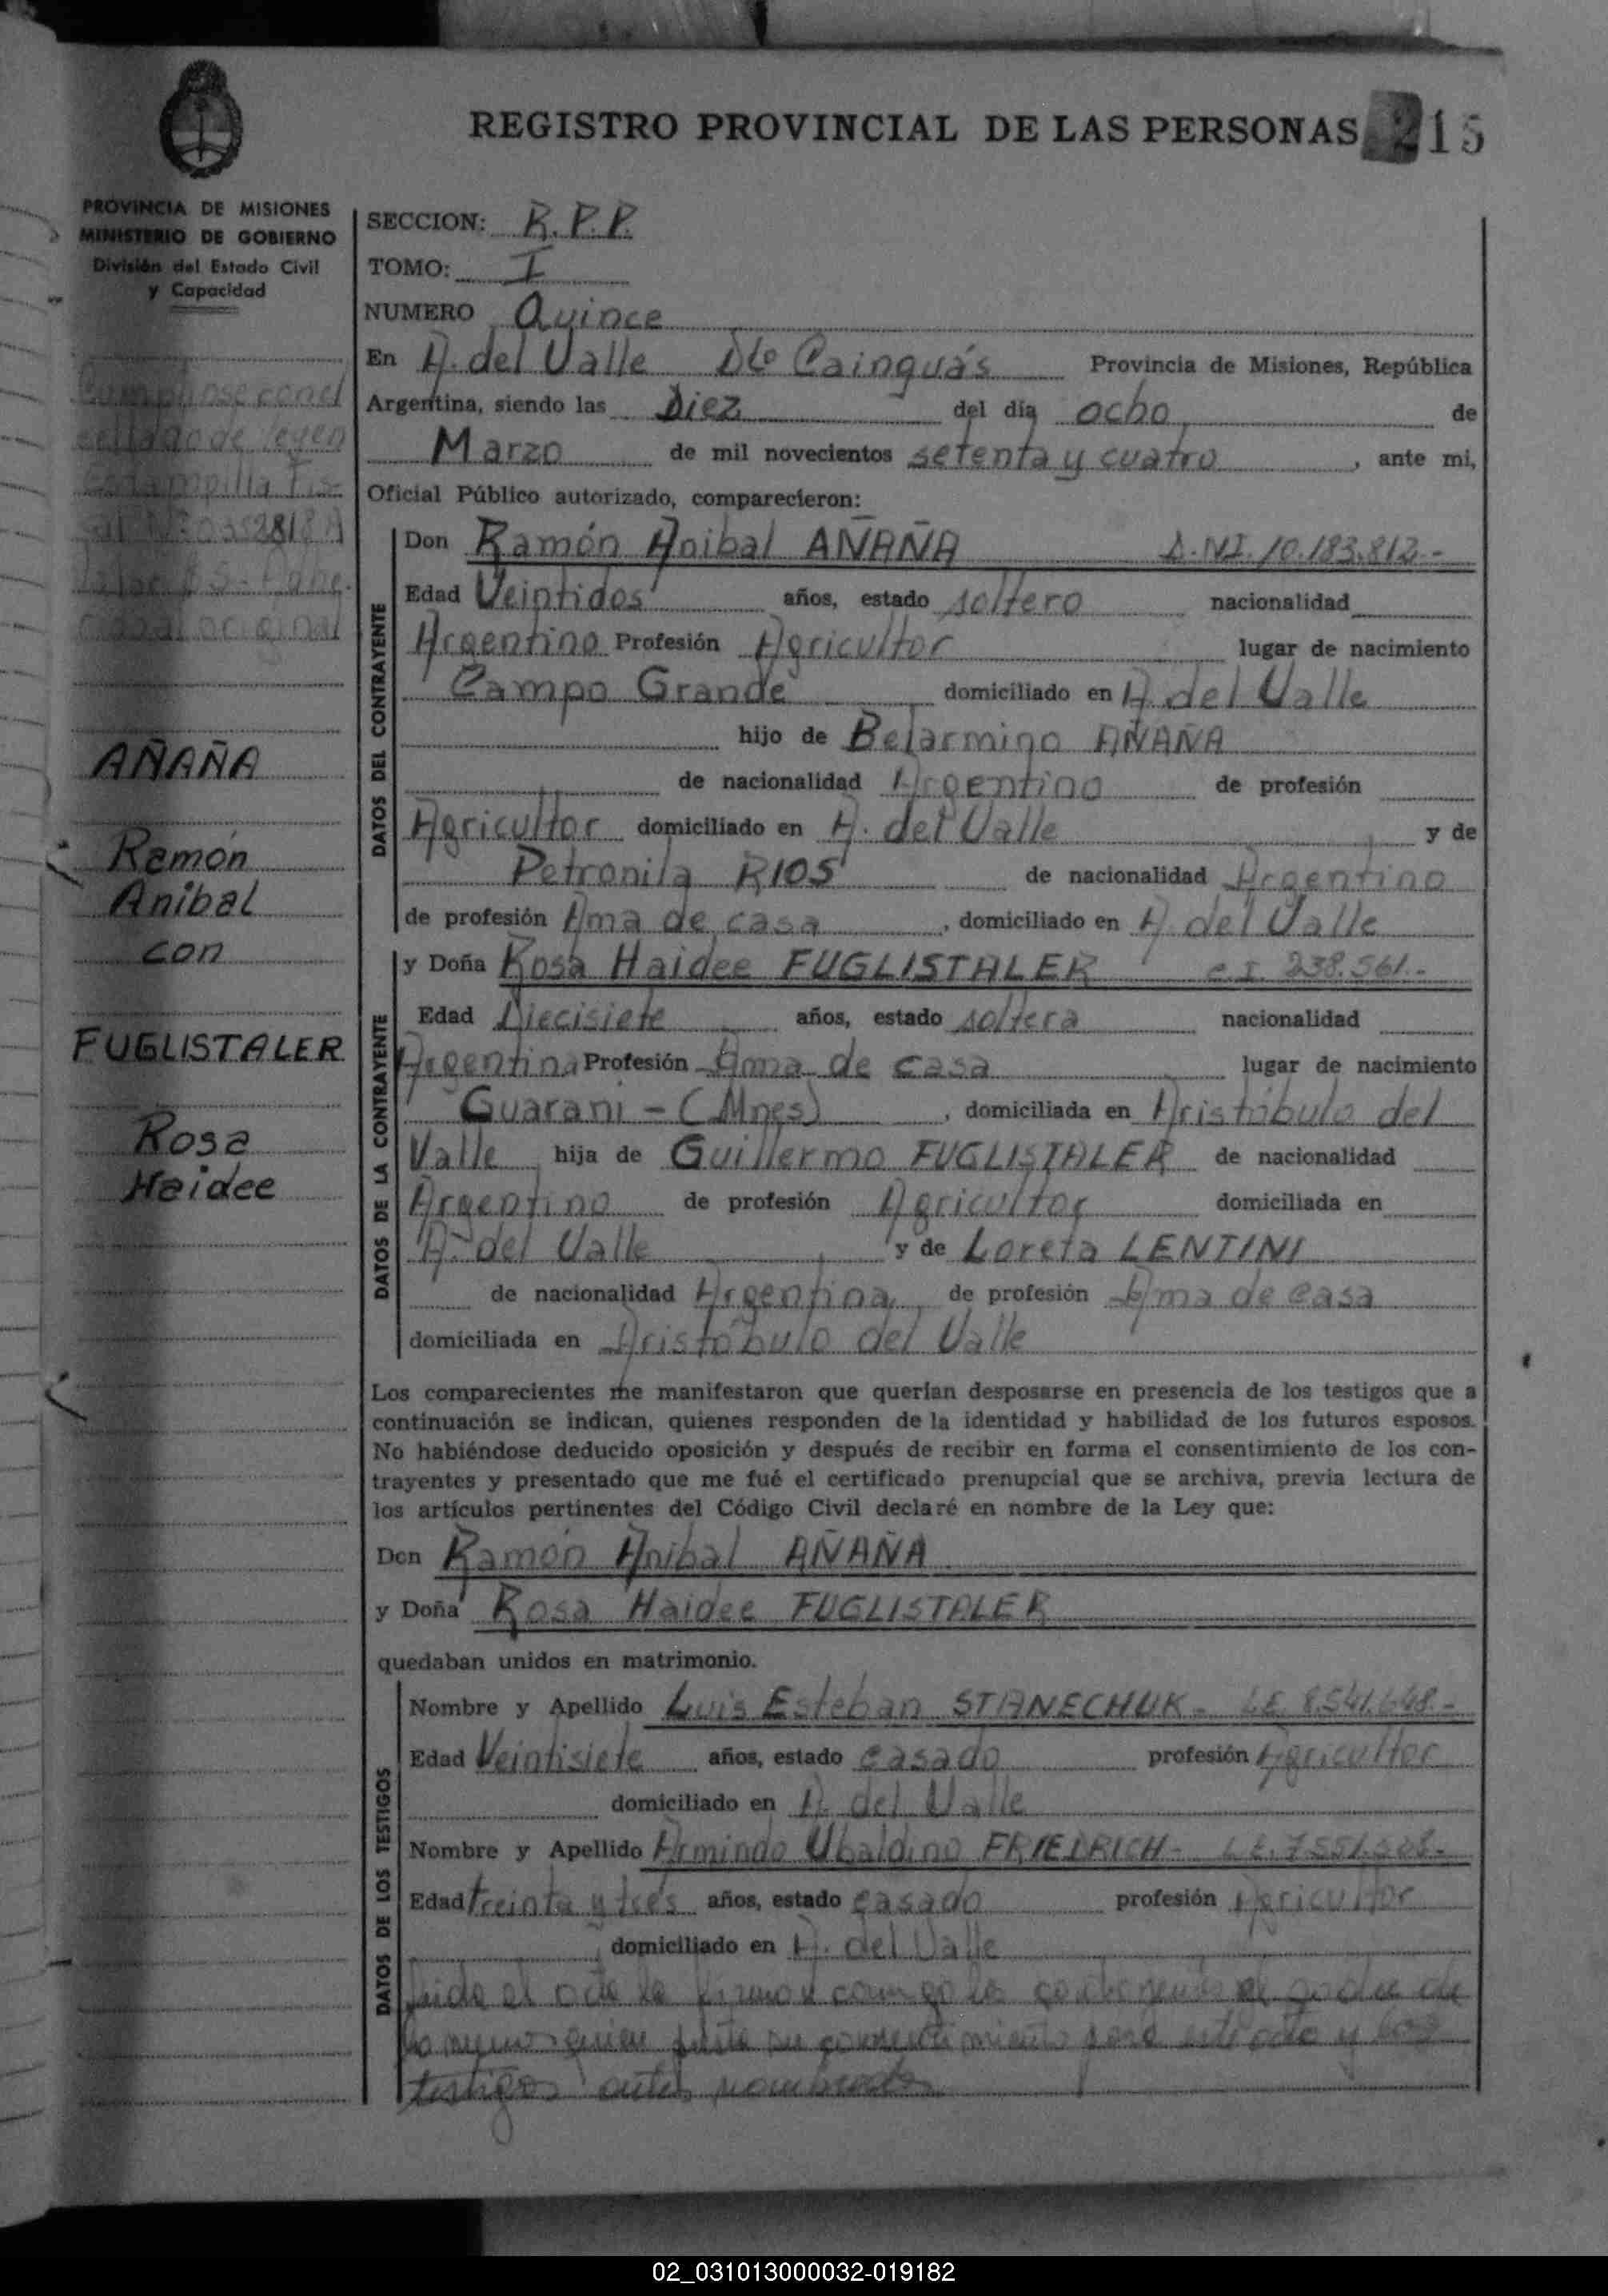 REGISTRO PROVINCIAL DE LAS PERSONAS 215
PROVINCIA DE MISIONES
MINISTERIO DE GOBIERNO
División del Estado Civil
y Capacidad
SECCION: R.P.P.
TOMO: I
NUMERO Quince
En A. del Valle Dto Cainguás Provincia de Misiones, República
Argentina, siendo las Diez del día ocho de
Marzo de mil novecientos setenta y cuatro, ante mi,
Oficial Público autorizado, comparecieron:
Cumplese con el
sellado de ley en
Estampilla Fis-
cal
original
AÑAÑA
Ramón
Anibal
con
FUGLISTALER
Rosa
Haidee
DATOS DEL CONTRAYENTE
Don Ramón Anibal AÑAÑA D.N.I. 10.183.812.-
Edad Veintidos años, estado soltero nacionalidad
Argentino Profesión Agricultor lugar de nacimiento
Campo Grande domiciliado en A. del Valle
hijo de Belarmino AÑAÑA
de nacionalidad Argentino de profesión
Agricultor domiciliado en A. del Valle y de
Petronila RIOS de nacionalidad Argentino
de profesión Ama de casa, domiciliado en A. del Valle
DATOS DE LA CONTRAYENTE
y Doña Rosa Haidee FUGLISTALER C.I. 238.561.-
Edad Diecisiete años, estado soltera nacionalidad
Argentina Profesión Ama de casa lugar de nacimiento
Guarani - (Mnes), domiciliada en Aristóbulo del
Valle hija de Guillermo FUGLISTALER de nacionalidad
Argentino de profesión Agricultor domiciliada en
A. del Valle y de Loreta LENTINI
de nacionalidad Argentina de profesión Ama de casa
domiciliada en Aristóbulo del Valle
Los comparecientes me manifestaron que querían desposarse en presencia de los testigos que a
continuación se indican, quienes responden de la identidad y habilidad de los futuros esposos.
No habiéndose deducido oposición y después de recibir en forma el consentimiento de los con-
trayentes y presentado que me fué el certificado prenupcial que se archiva, previa lectura de
los artículos pertinentes del Código Civil declaré en nombre de la Ley que:
Don Ramón Anibal AÑAÑA
y Doña Rosa Haidee FUGLISTALER
quedaban unidos en matrimonio.
DATOS DE LOS TESTIGOS
Nombre y Apellido Luis Esteban STANECHUK - L.E. 8.541.648.-
Edad Veintisiete años, estado casado profesión Agricultor
domiciliado en A. del Valle
Nombre y Apellido Armindo Ubaldino FRIEDRICH - L.E.
Edad treinta y tres años, estado casado profesión Agricultor
domiciliado en A. del Valle
Leido el acta la firman conmigo los contrayentes el padre de
la menor quien presta su consentimiento para este acto y los
testigos antes nombrados
02_031013000032-019182